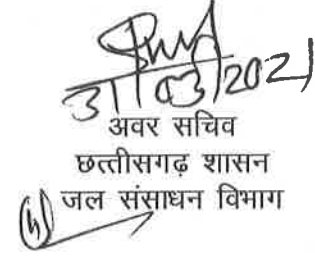 31/03/2021
अवर सचिव
छत्तीसगढ़ शासन
जल संसाधन विभाग